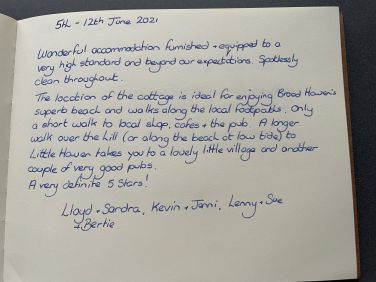 5th - 12th June 2021
Wonderful accommodation furnished + equipped to a
very high standard and beyond our expectations. Spotlessly
clean throughout.
The location of the cottage is ideal for enjoying Broad Haven's
superb beach and walks along the local footpaths. Only
a short walk to local shop, cafes + the pub. A longer
walk over the hill (or along the beach at low tide) to
Little Haven takes you to a lovely little village and another
couple of very good pubs.
A very definite 5 Stars!
Lloyd + Sandra, Kevin + Jenni, Lenny + Sue
+ Bertie